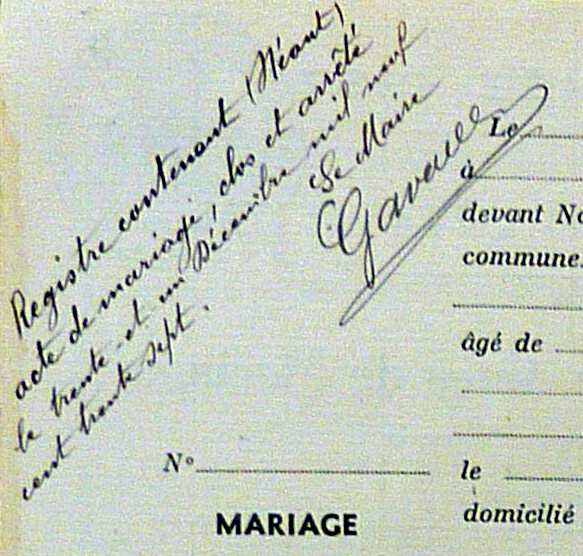 Registre contenant (Néant)
acte de mariage, clos et arrêté
le trente et un Décembre mil neuf
cent trente sept.
Le Maire
Le
à
devant No
commune
âgé de
le
domicilié
N°
MARIAGE